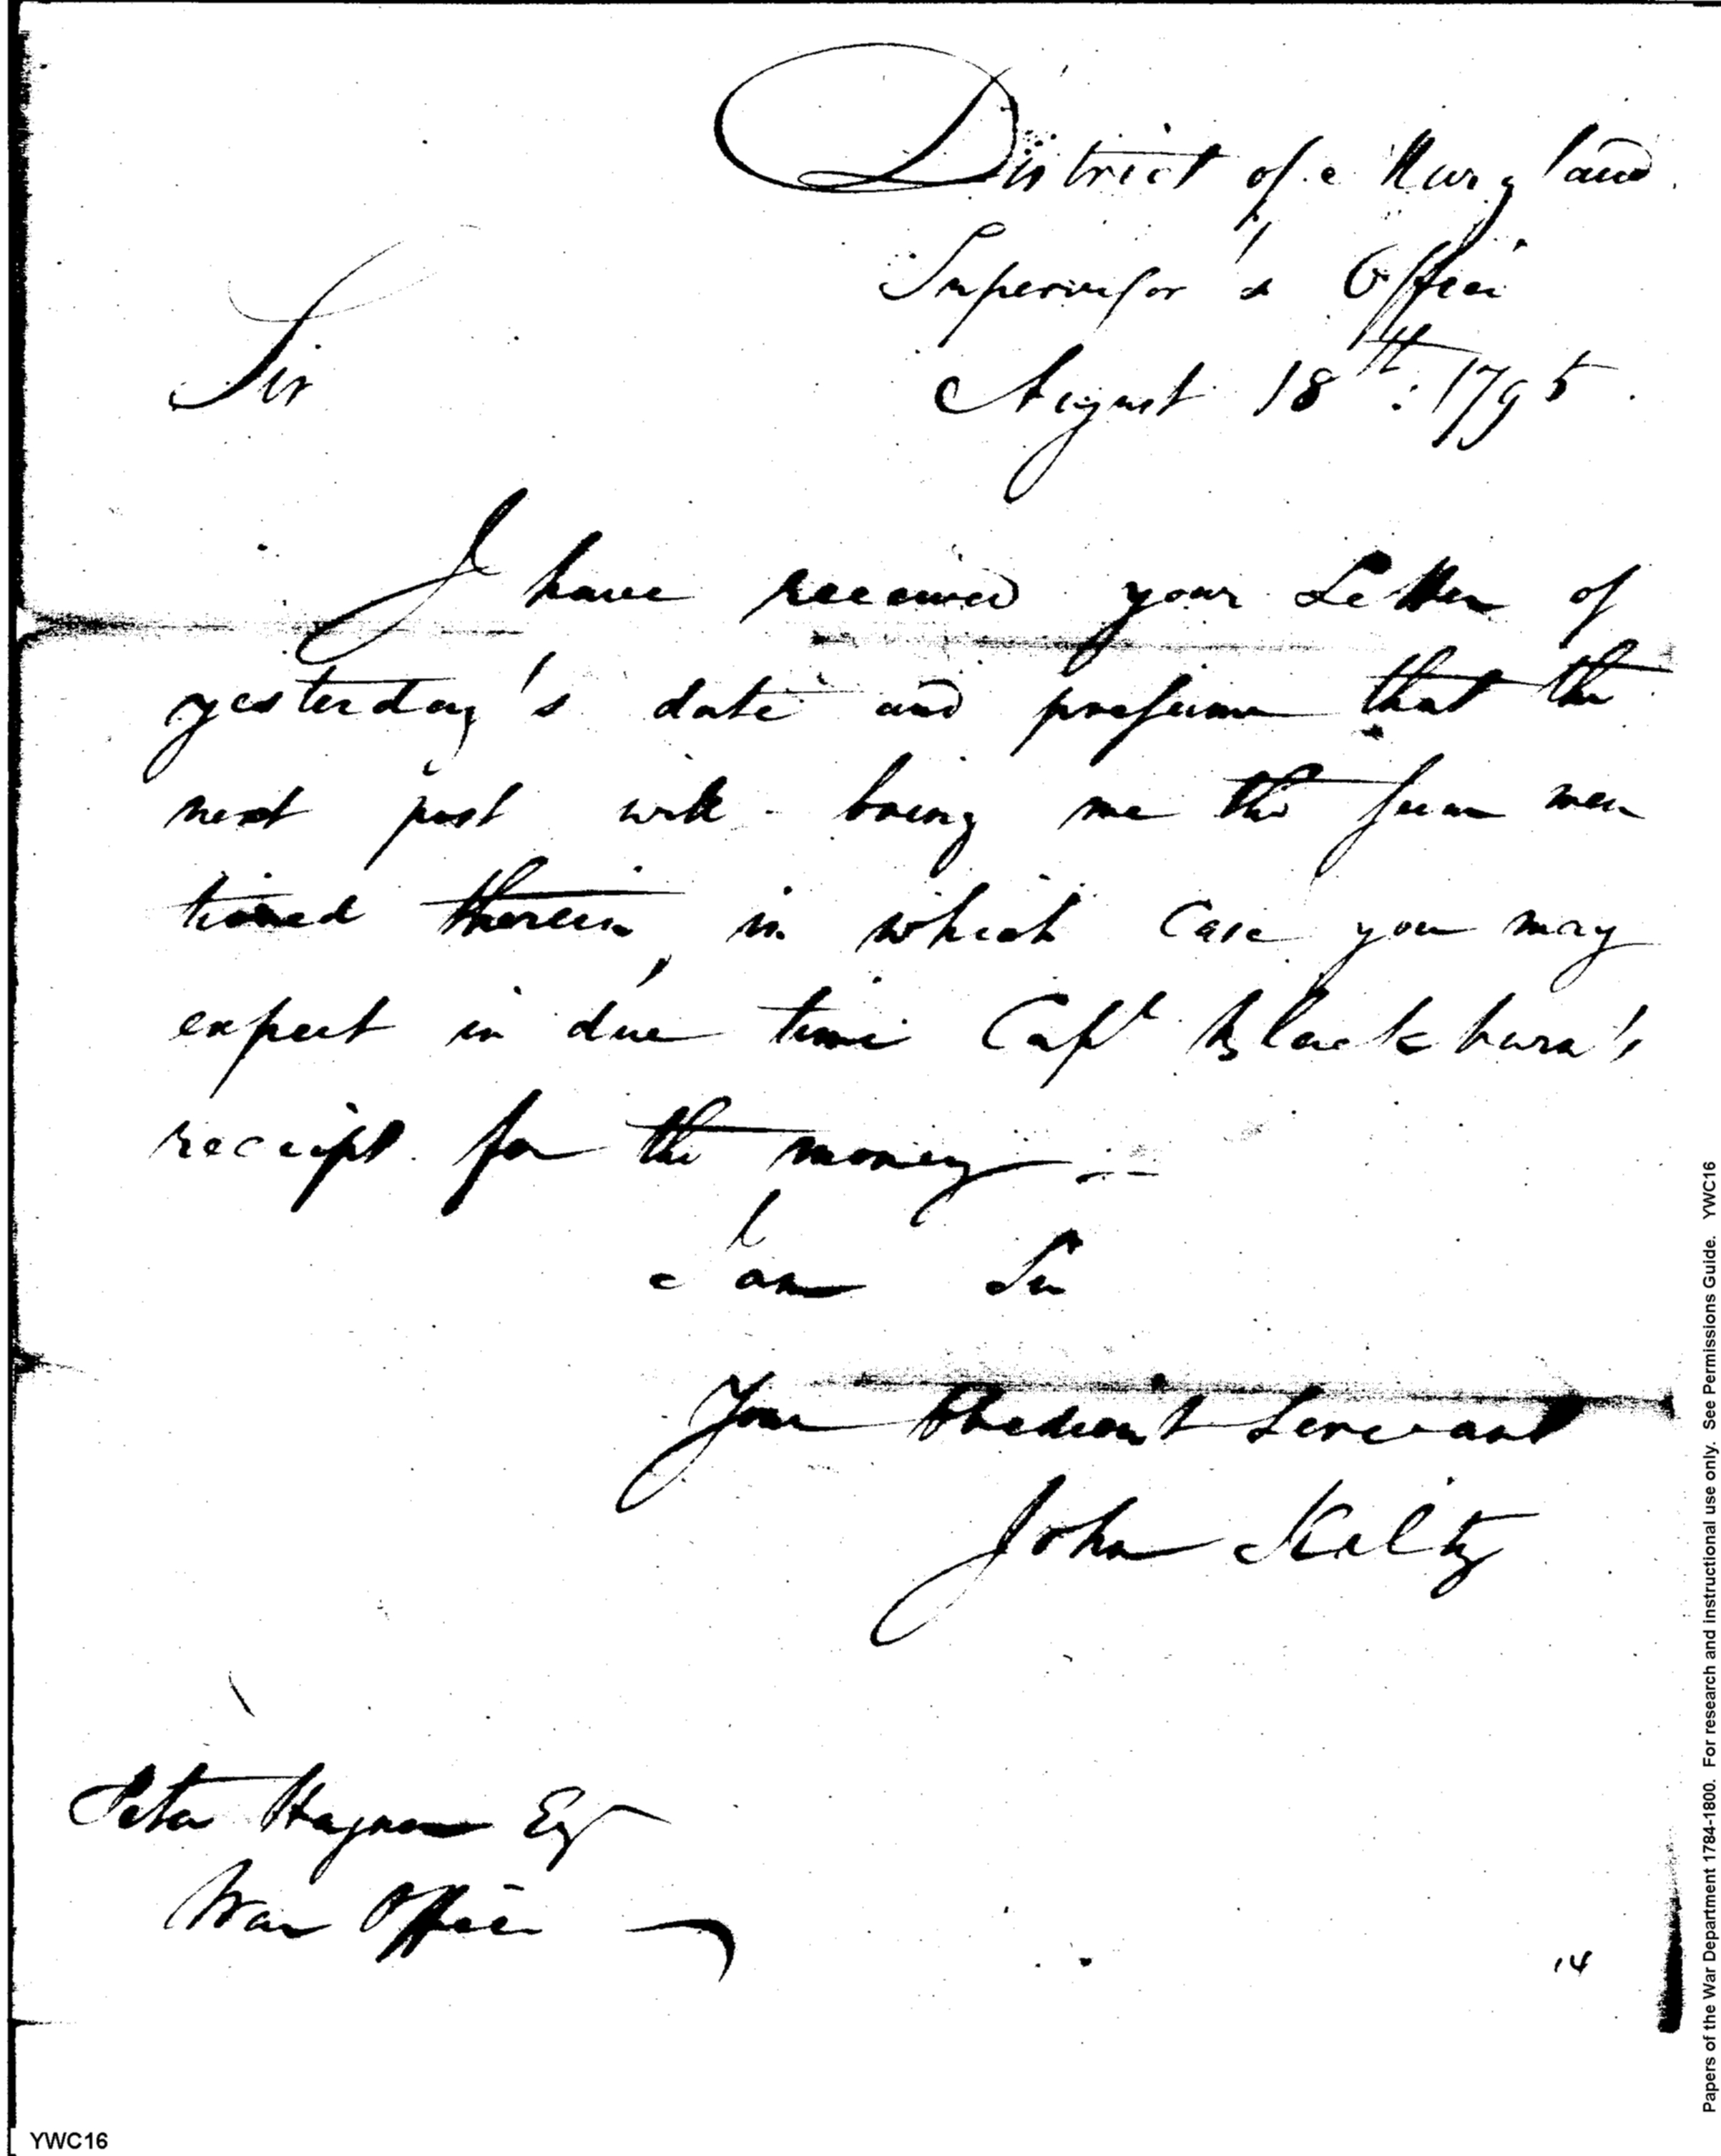 District of Maryland
Supervisor's Office
Sir
August 18th: 1795.
I have received your Letter of
yesterday's date and presume that the
next post will bring me the sum men
tioned therein, in which case you may
expect in due time Capt Blackburn's
receipt for the money —
I am Sir
Your Obedient Servant
John Kilty
Peter Hagner Esqr
War Office
14
YWC16
Papers of the War Department 1784-1800. For research and instructional use only. See Permissions Guide. YWC16